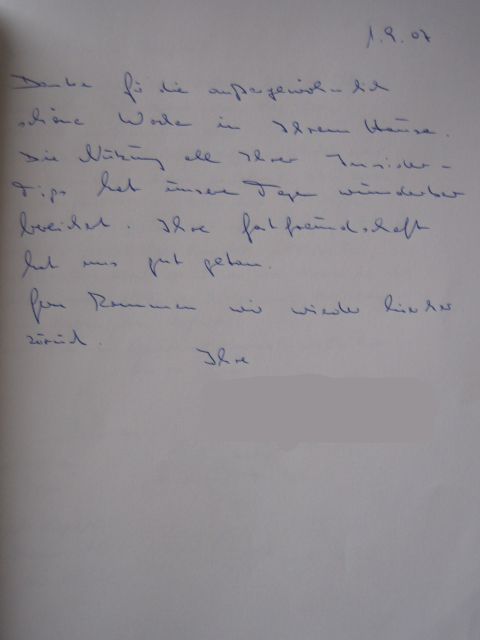 1.9.07
Danke für die außergewöhnlich
schöne Woche in Ihrem Hause.
Die Nutzung all Ihrer Insider-
Tips hat unsere Tage wunderbar
bereichert. Ihre Gastfreundschaft
hat uns gut getan.
Gern kommen wir wieder hierher
zurück.
Ihre